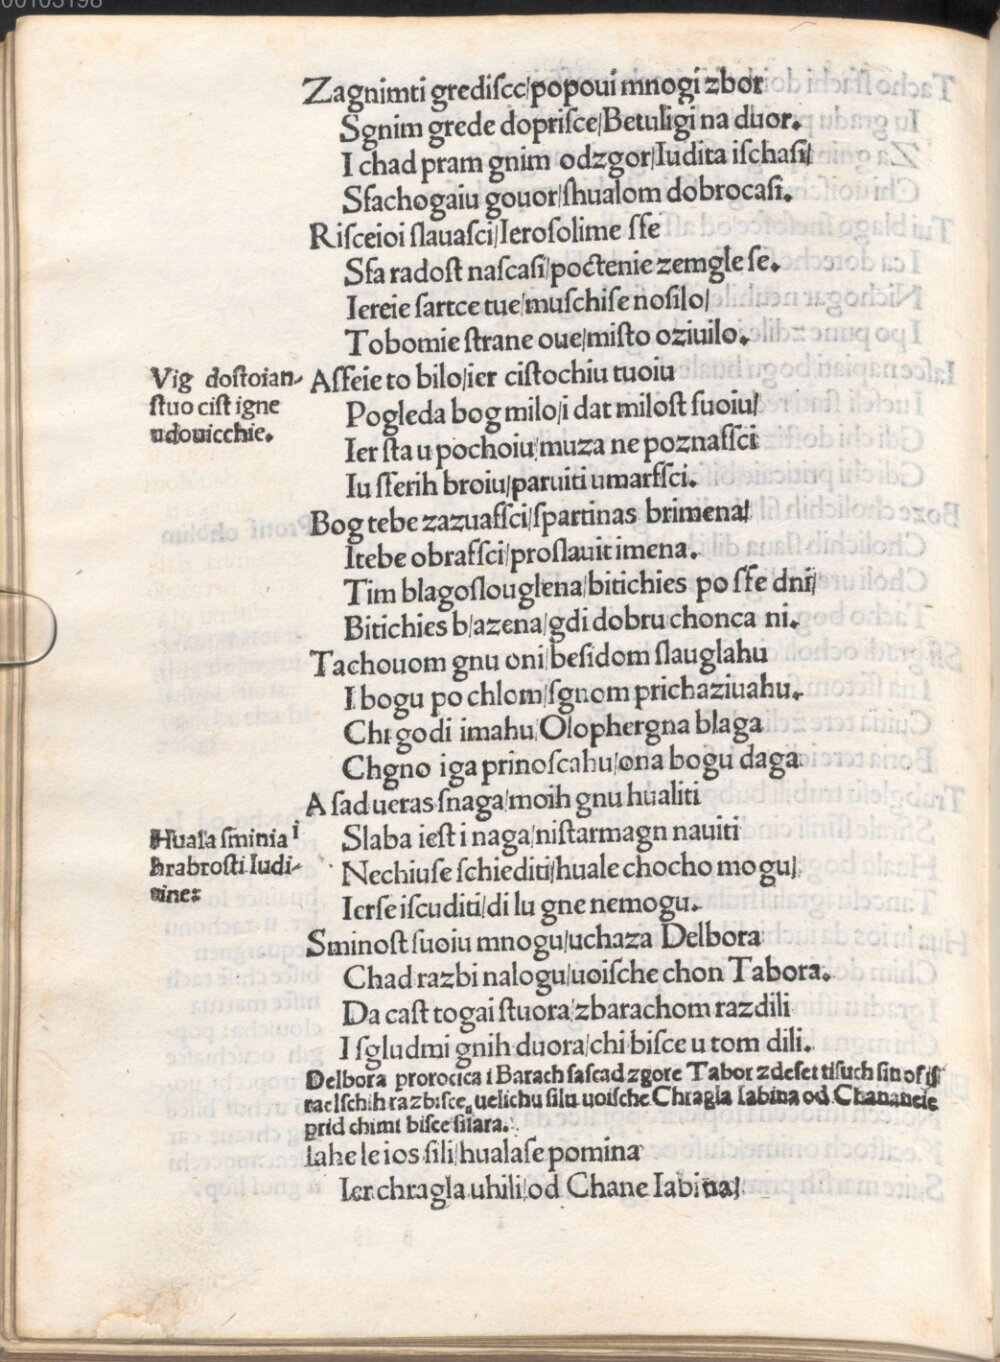 00103198
Zagnimti grediſcc/popoui mnogi zbor
Sgnim grede dopriſce/Betuligi na duor.
I chad pram gnim odzgor/Iudita iſchaſi/
Sfachogaiu gouor/ſhualom dobrocaſi.
Riſceioi ſlauaſci/Ieroſolime ſſe
Sfa radoſt naſcaſi/poctenie zemgle ſe.
Iereie ſartce tue/muſchiſe noſilo/
Tobomie ſtrane oue/miſto oziuilo.
Vig doſtoian-
ſtuo ciſt igne
udouicchie.
Aſſeie to bilo/ier ciſtochiu tuoiu
Pogleda bog milo/i dat miloſt ſuoiu/
Ier ſta u pochoiu/muza ne poznaſſci
Iu ſſerih broiu/paruiti umarſſci.
Bog tebe zazuaſſci/ſpartinas brimena/
Itebe obraſſci/proſlauit imena.
Tim blagoſlouglena/bitichies po ſſe dni/
Bitichies blazena/gdi dobru chonca ni.
Tachouom gnu oni/beſidom ſlauglahu
I bogu po chlom/ſgnom prichaziuahu.
Chi godi imahu/Olophergna blaga
Chgno iga prinoſcahu/ona bogu daga
A ſad ueras ſnaga/moih gnu hualiti
Huala ſminia i
hrabroſti Iudi-
tine:
Slaba ieſt i naga/niſtarmagn nauiti
Nechiuſe ſchiediti/huale chocho mogu/
Ierſe iſcuditi/di lu gne nemogu.
Sminoſt ſuoiu mnogu/uchaza Delbora
Chad razbi nalogu/uoiſche chon Tabora.
Da caſt togai ſtuora/zbarachom razdili
I ſgludmi gnih duora/chi biſce u tom dili.
Delbora prorocica i Barach ſaſcad zgore Tabor z deſet tiſuch ſin of iſ
raelſchih razbiſce, uelichu ſilu uoiſche Chragla Iabina od Chananeie
prid chimi biſce ſiſara.
Iahe le ios ſili/hualaſe pomina
Ier chragla uhili/od Chane Iabina/